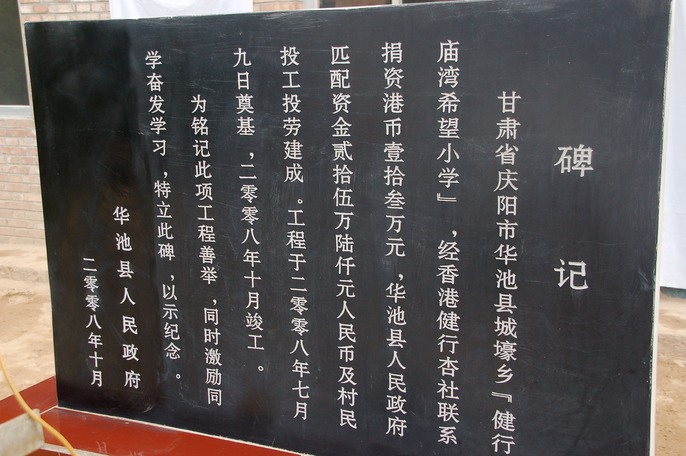 碑记
甘肃省庆阳市华池县城壕乡『健行
庙湾希望小学』，经香港健行杏社联系
捐资港币壹拾叁万元，华池县人民政府
匹配资金贰拾伍万陆仟元人民币及村民
投工投劳建成。工程于二零零八年七月
九日奠基，二零零八年十月竣工。
为铭记此项工程善举，同时激励同
学奋发学习，特立此碑，以示纪念。
华池县人民政府
二零零八年十月